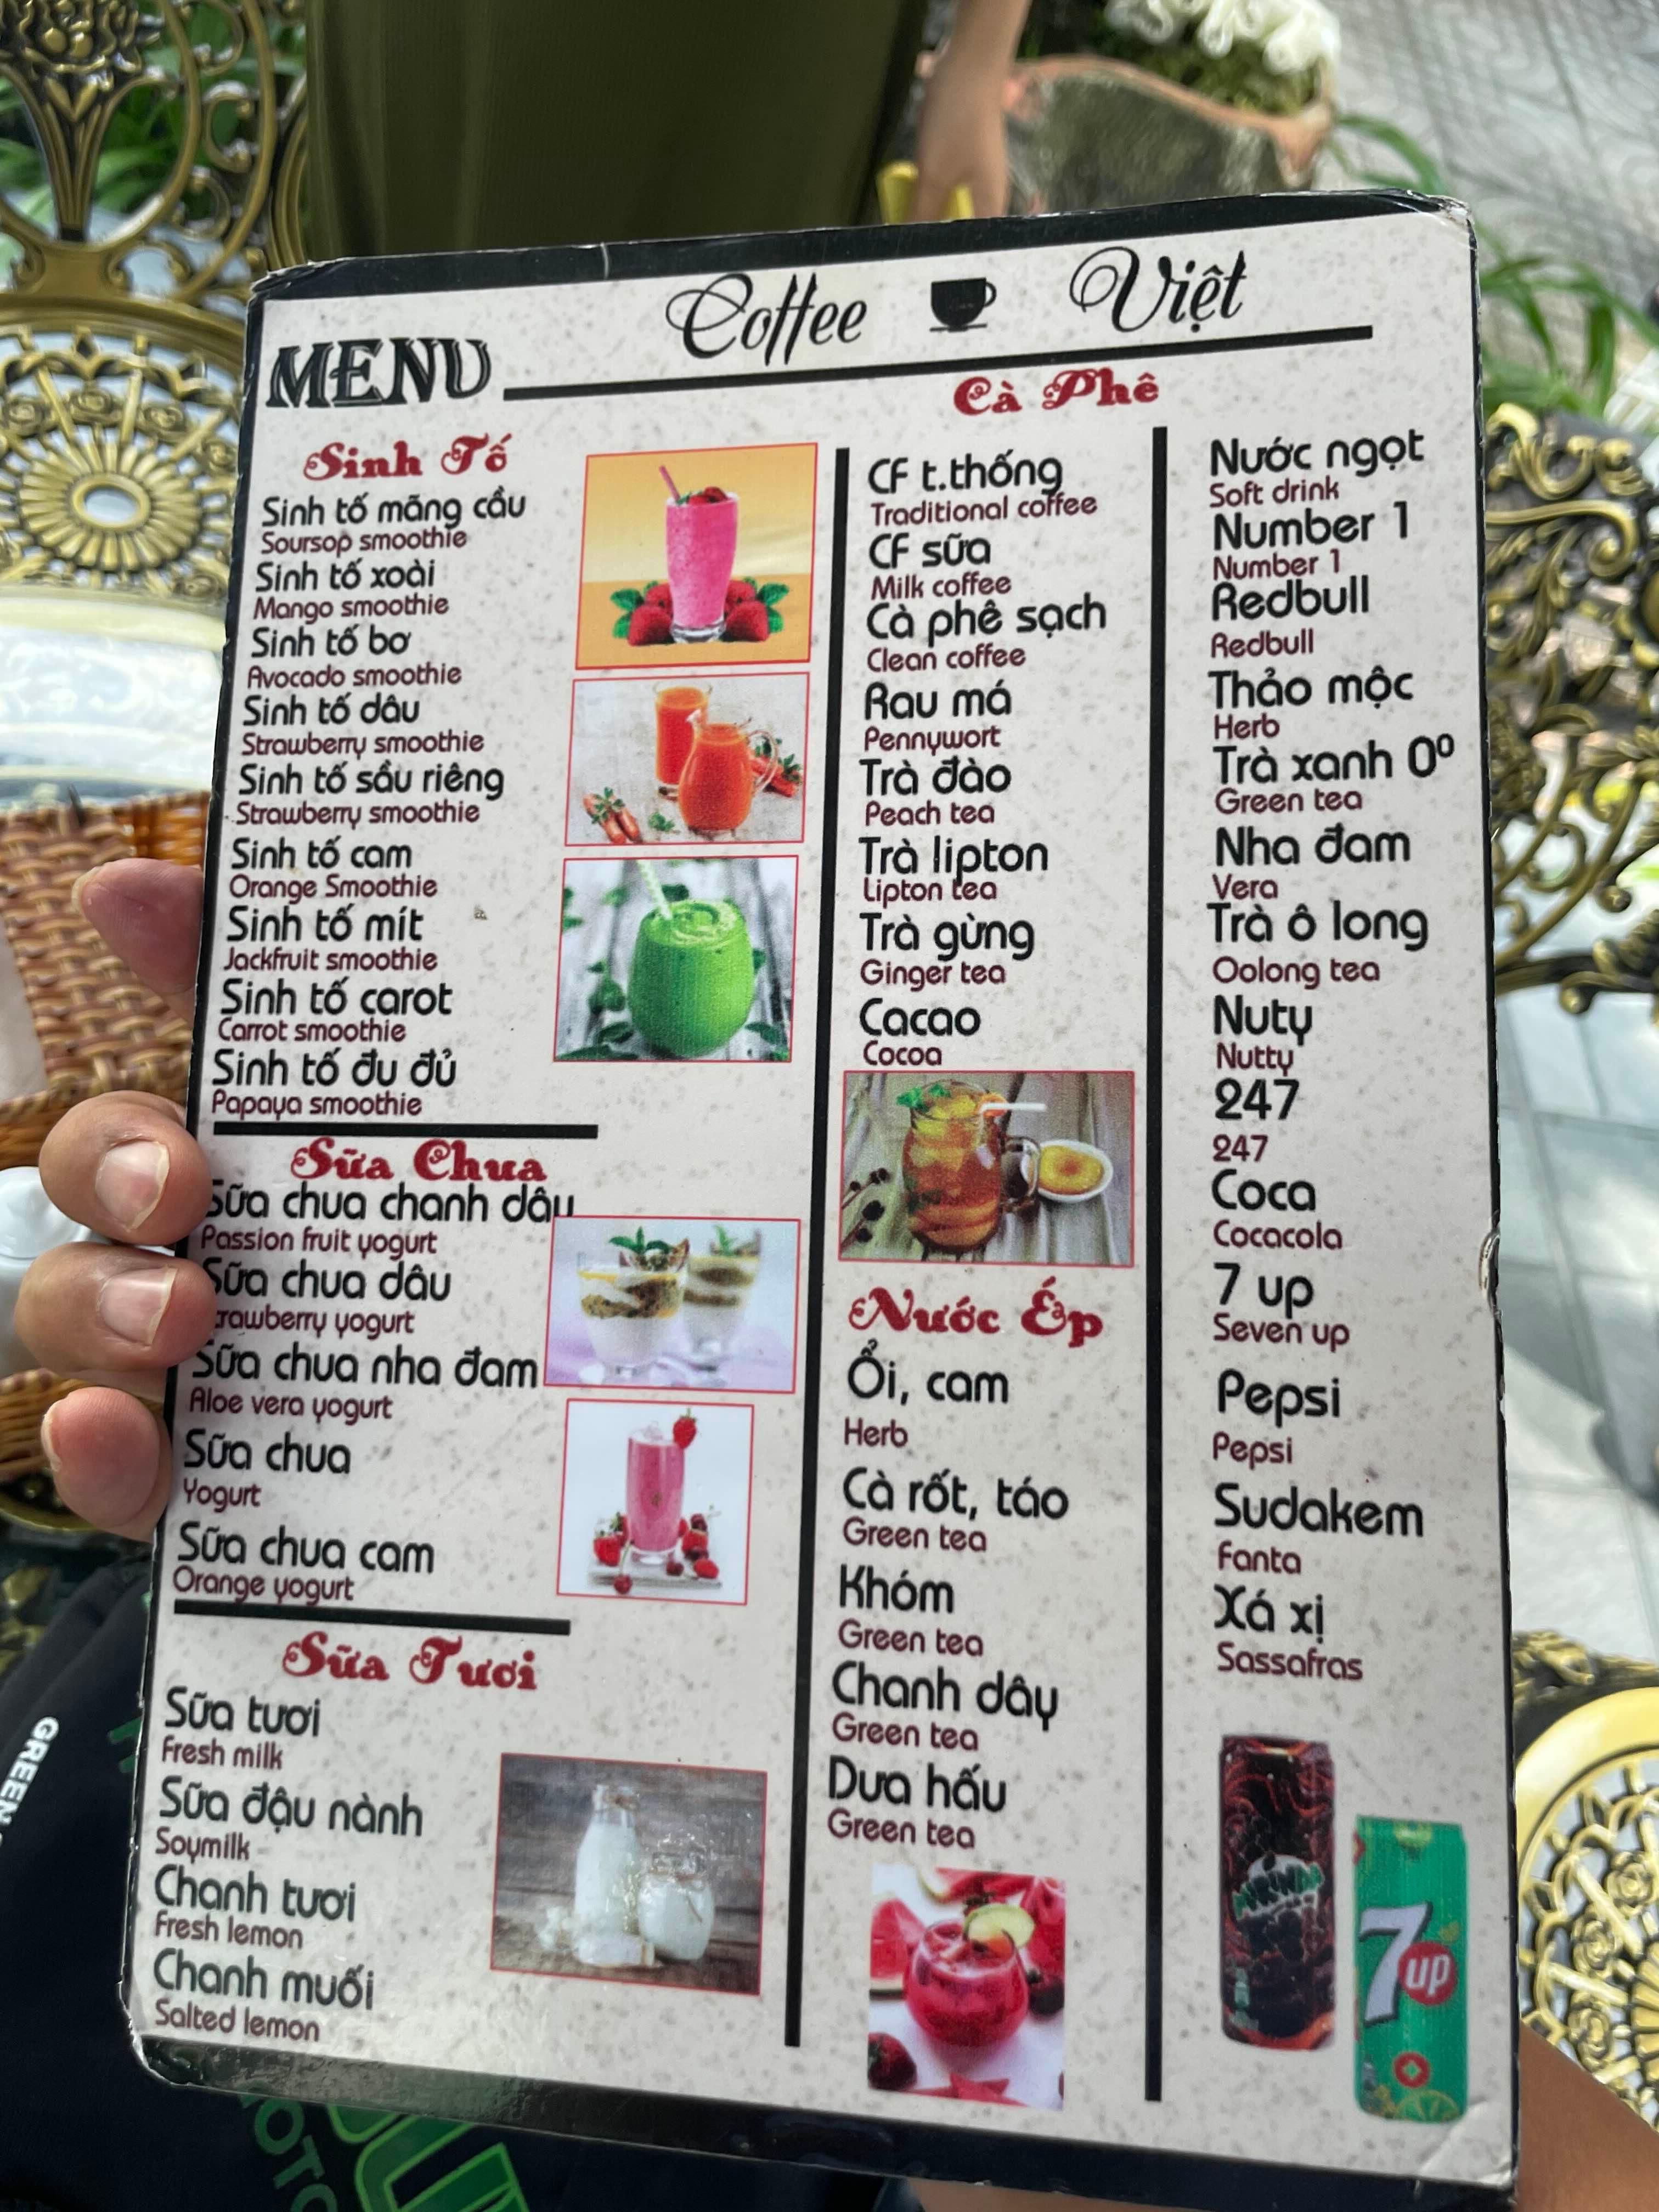 Coffee Việt
MENU
Sinh Tố
Sinh tố mãng cầu
Soursop smoothie
Sinh tố xoài
Mango smoothie
Sinh tố bơ
Avocado smoothie
Sinh tố dâu
Strawberry smoothie
Sinh tố sầu riêng
Strawberry smoothie
Sinh tố cam
Orange Smoothie
Sinh tố mít
Jackfruit smoothie
Sinh tố carot
Carrot smoothie
Sinh tố đu đủ
Papaya smoothie
Sữa Chua
Sữa chua chanh dây
Passion fruit yogurt
Sữa chua dâu
trawberry yogurt
Sữa chua nha đam
Aloe vera yogurt
Sữa chua
Yogurt
Sữa chua cam
Orange yogurt
Sữa Tươi
Sữa tươi
Fresh milk
Sữa đậu nành
Soymilk
Chanh tươi
Fresh lemon
Chanh muối
Salted lemon
Cà Phê
CF t.thống
Traditional coffee
CF sữa
Milk coffee
Cà phê sạch
Clean coffee
Rau má
Pennywort
Trà đào
Peach tea
Trà lipton
Lipton tea
Trà gừng
Ginger tea
Cacao
Cocoa
Nước Ép
Ổi, cam
Herb
Cà rốt, táo
Green tea
Khóm
Green tea
Chanh dây
Green tea
Dưa hấu
Green tea
Nước ngọt
Soft drink
Number 1
Number 1
Redbull
Redbull
Thảo mộc
Herb
Trà xanh 0º
Green tea
Nha đam
Vera
Trà ô long
Oolong tea
Nuty
Nutty
247
247
Coca
Cocacola
7 up
Seven up
Pepsi
Pepsi
Sudakem
Fanta
Xá xị
Sassafras
MIRINDA
7up
GREEN